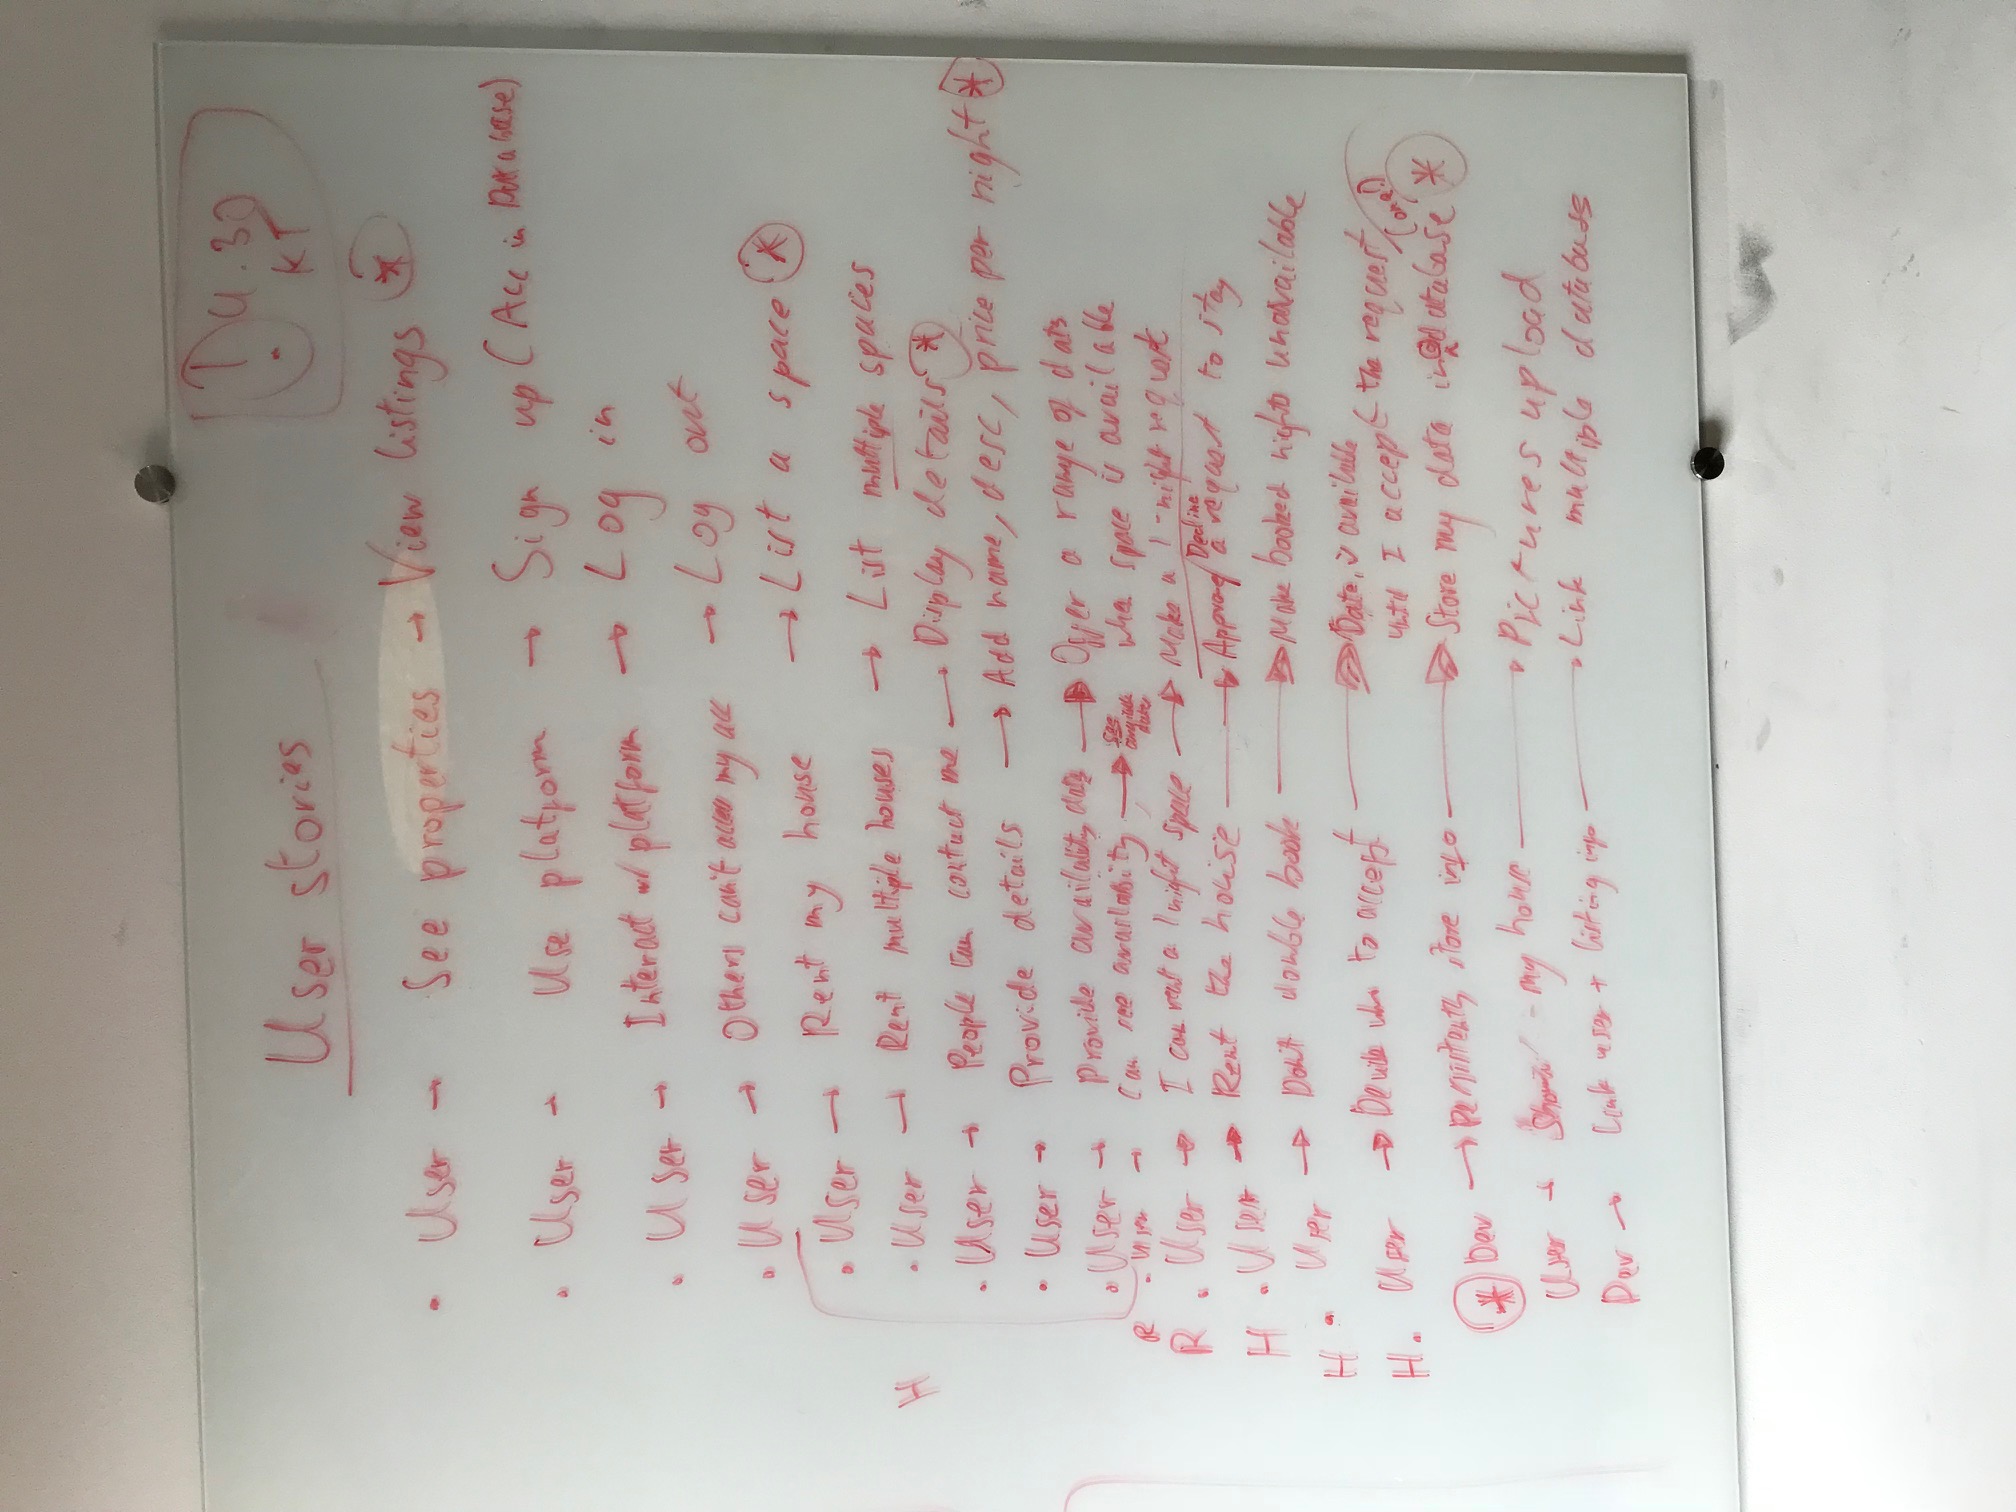 User stories
4.30
KT
• User → See properties → View listings *
• User → Use platform → Sign up (Acc in Database)
• User → Interact w/ platform → Log in
• User → Others can't access my acc → Log out
• User → Rent my house → List a space *
H • User → Rent multiple houses → List multiple spaces
• User → People can contact me → Display details *
• User → Provide details → Add name, desc, price per night *
• User → Provide availability dates → Offer a range of dats
when space is available
R • User → Can see availability → see available dates
R • User → I can rent a 1 night space → Make a 1-night request
H • User → Rent the house → Approve/Decline a request to stay
H • User → Don't double book → Make booked nights unavailable
H • User → Decide who to accept → Date is available
until I accept the request
* Dev → Persistently store info → Store my data in a database (one!) *
User → my house → Pictures upload
Dev → Link user + listing info → Link multiple databases